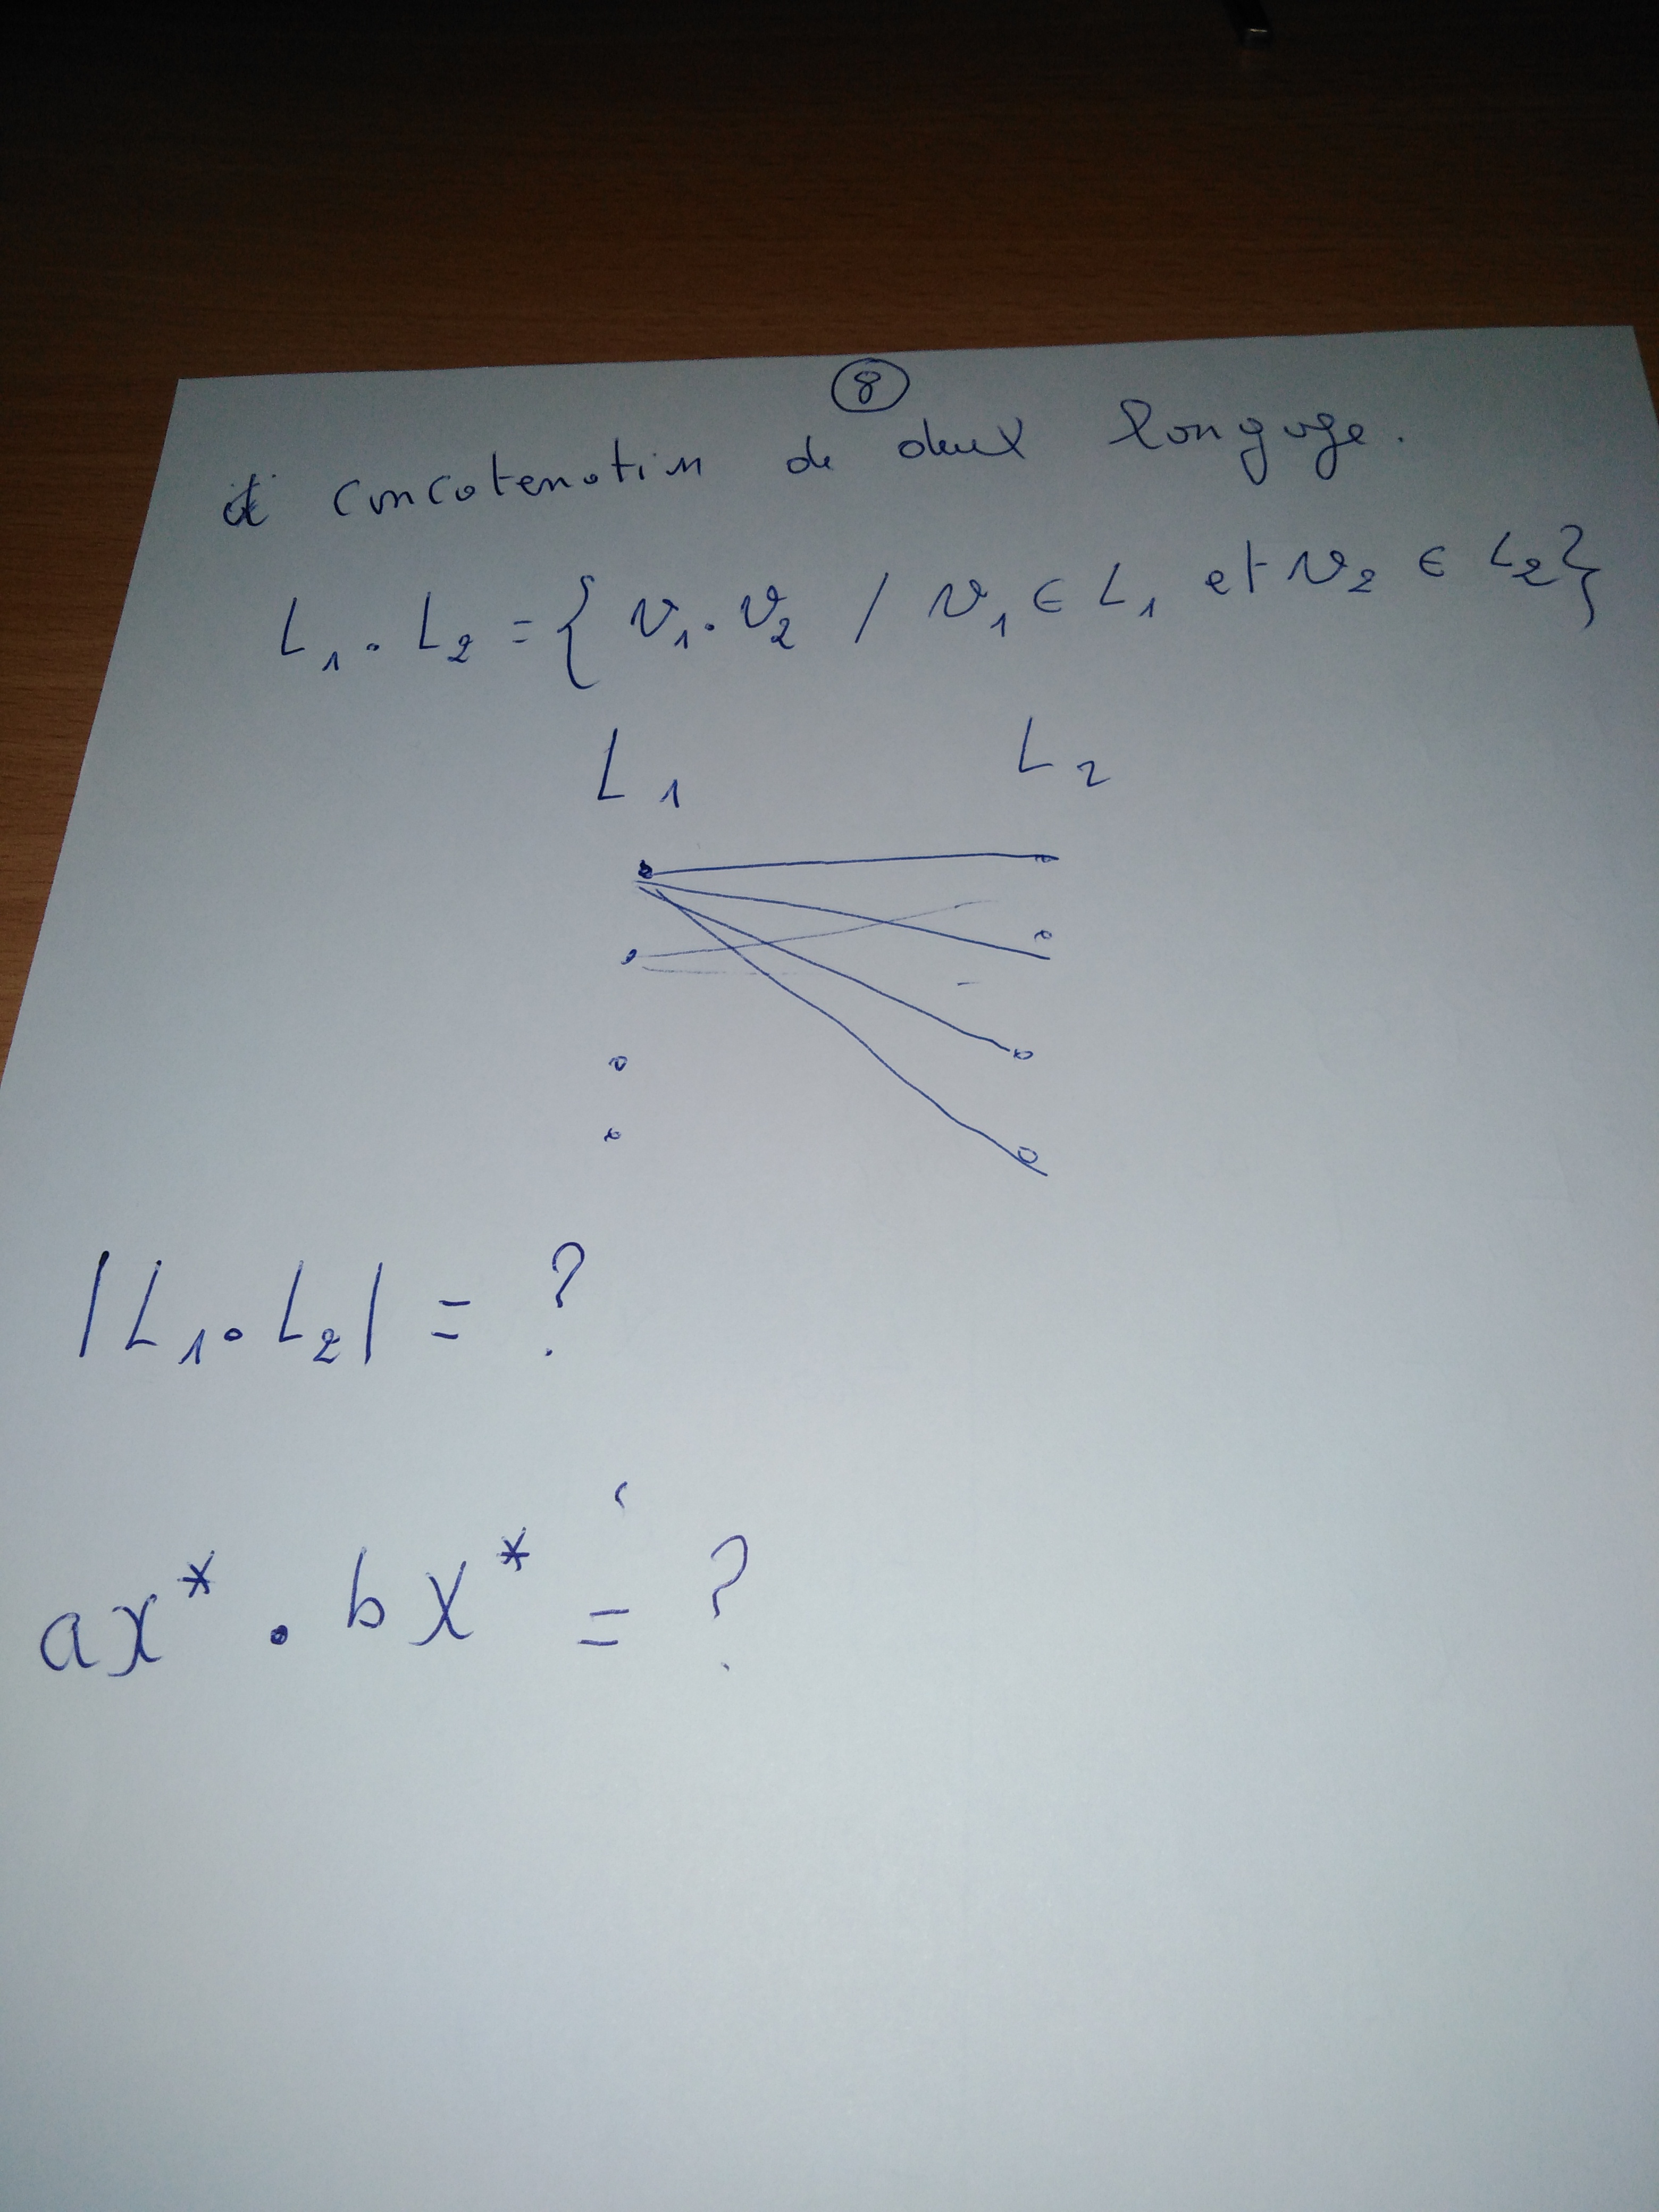 8
concatenation de deux langage.
L₁ . L₂ = { v₁ . v₂ / v₁ ∈ L₁ et v₂ ∈ L₂ }
L₁ L₂
|L₁ . L₂| = ?
aX* . bX* = ?